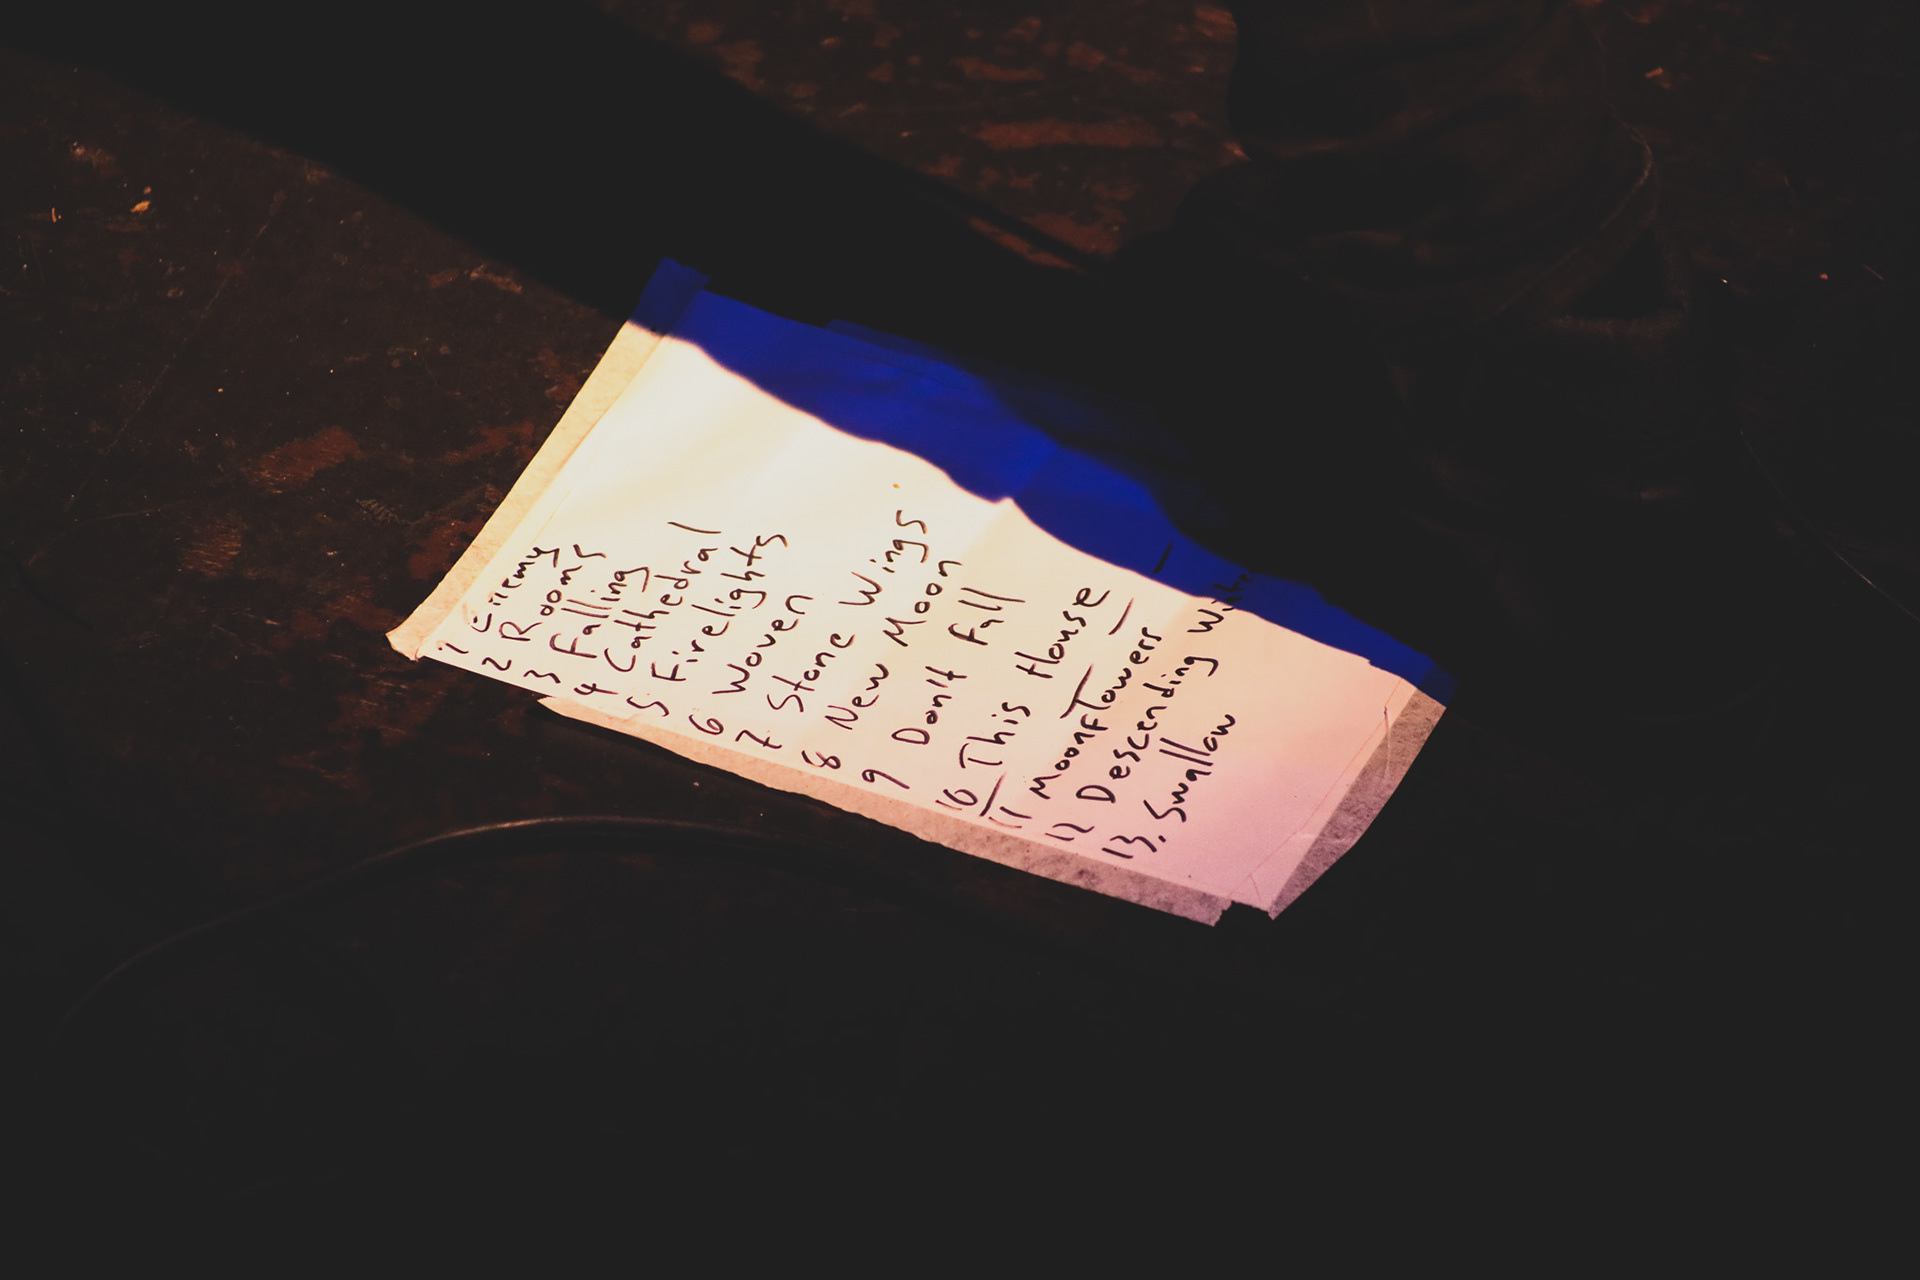 1 Enemy
2 Rooms
3 Falling
4 Cathedral
5 Firelights
6 Woven
7 Stone Wings
8 New Moon
9 Don't Fall
10 This House
11 Moonflowers
12 Descending Winter
13. Swallow